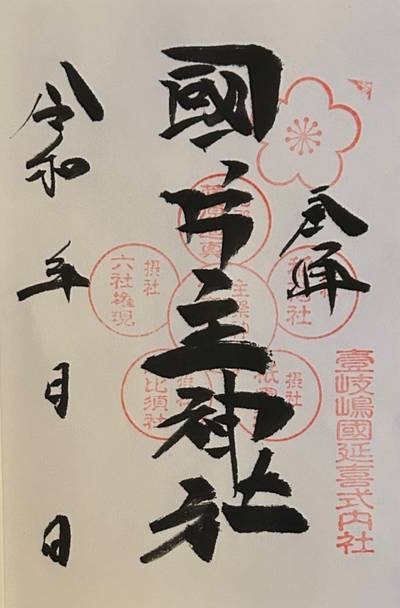 奉拝
壹岐嶋國延喜式内社
國片主神社
摂社
六社権現
摂社
比須社
摂社
令和 年 月 日